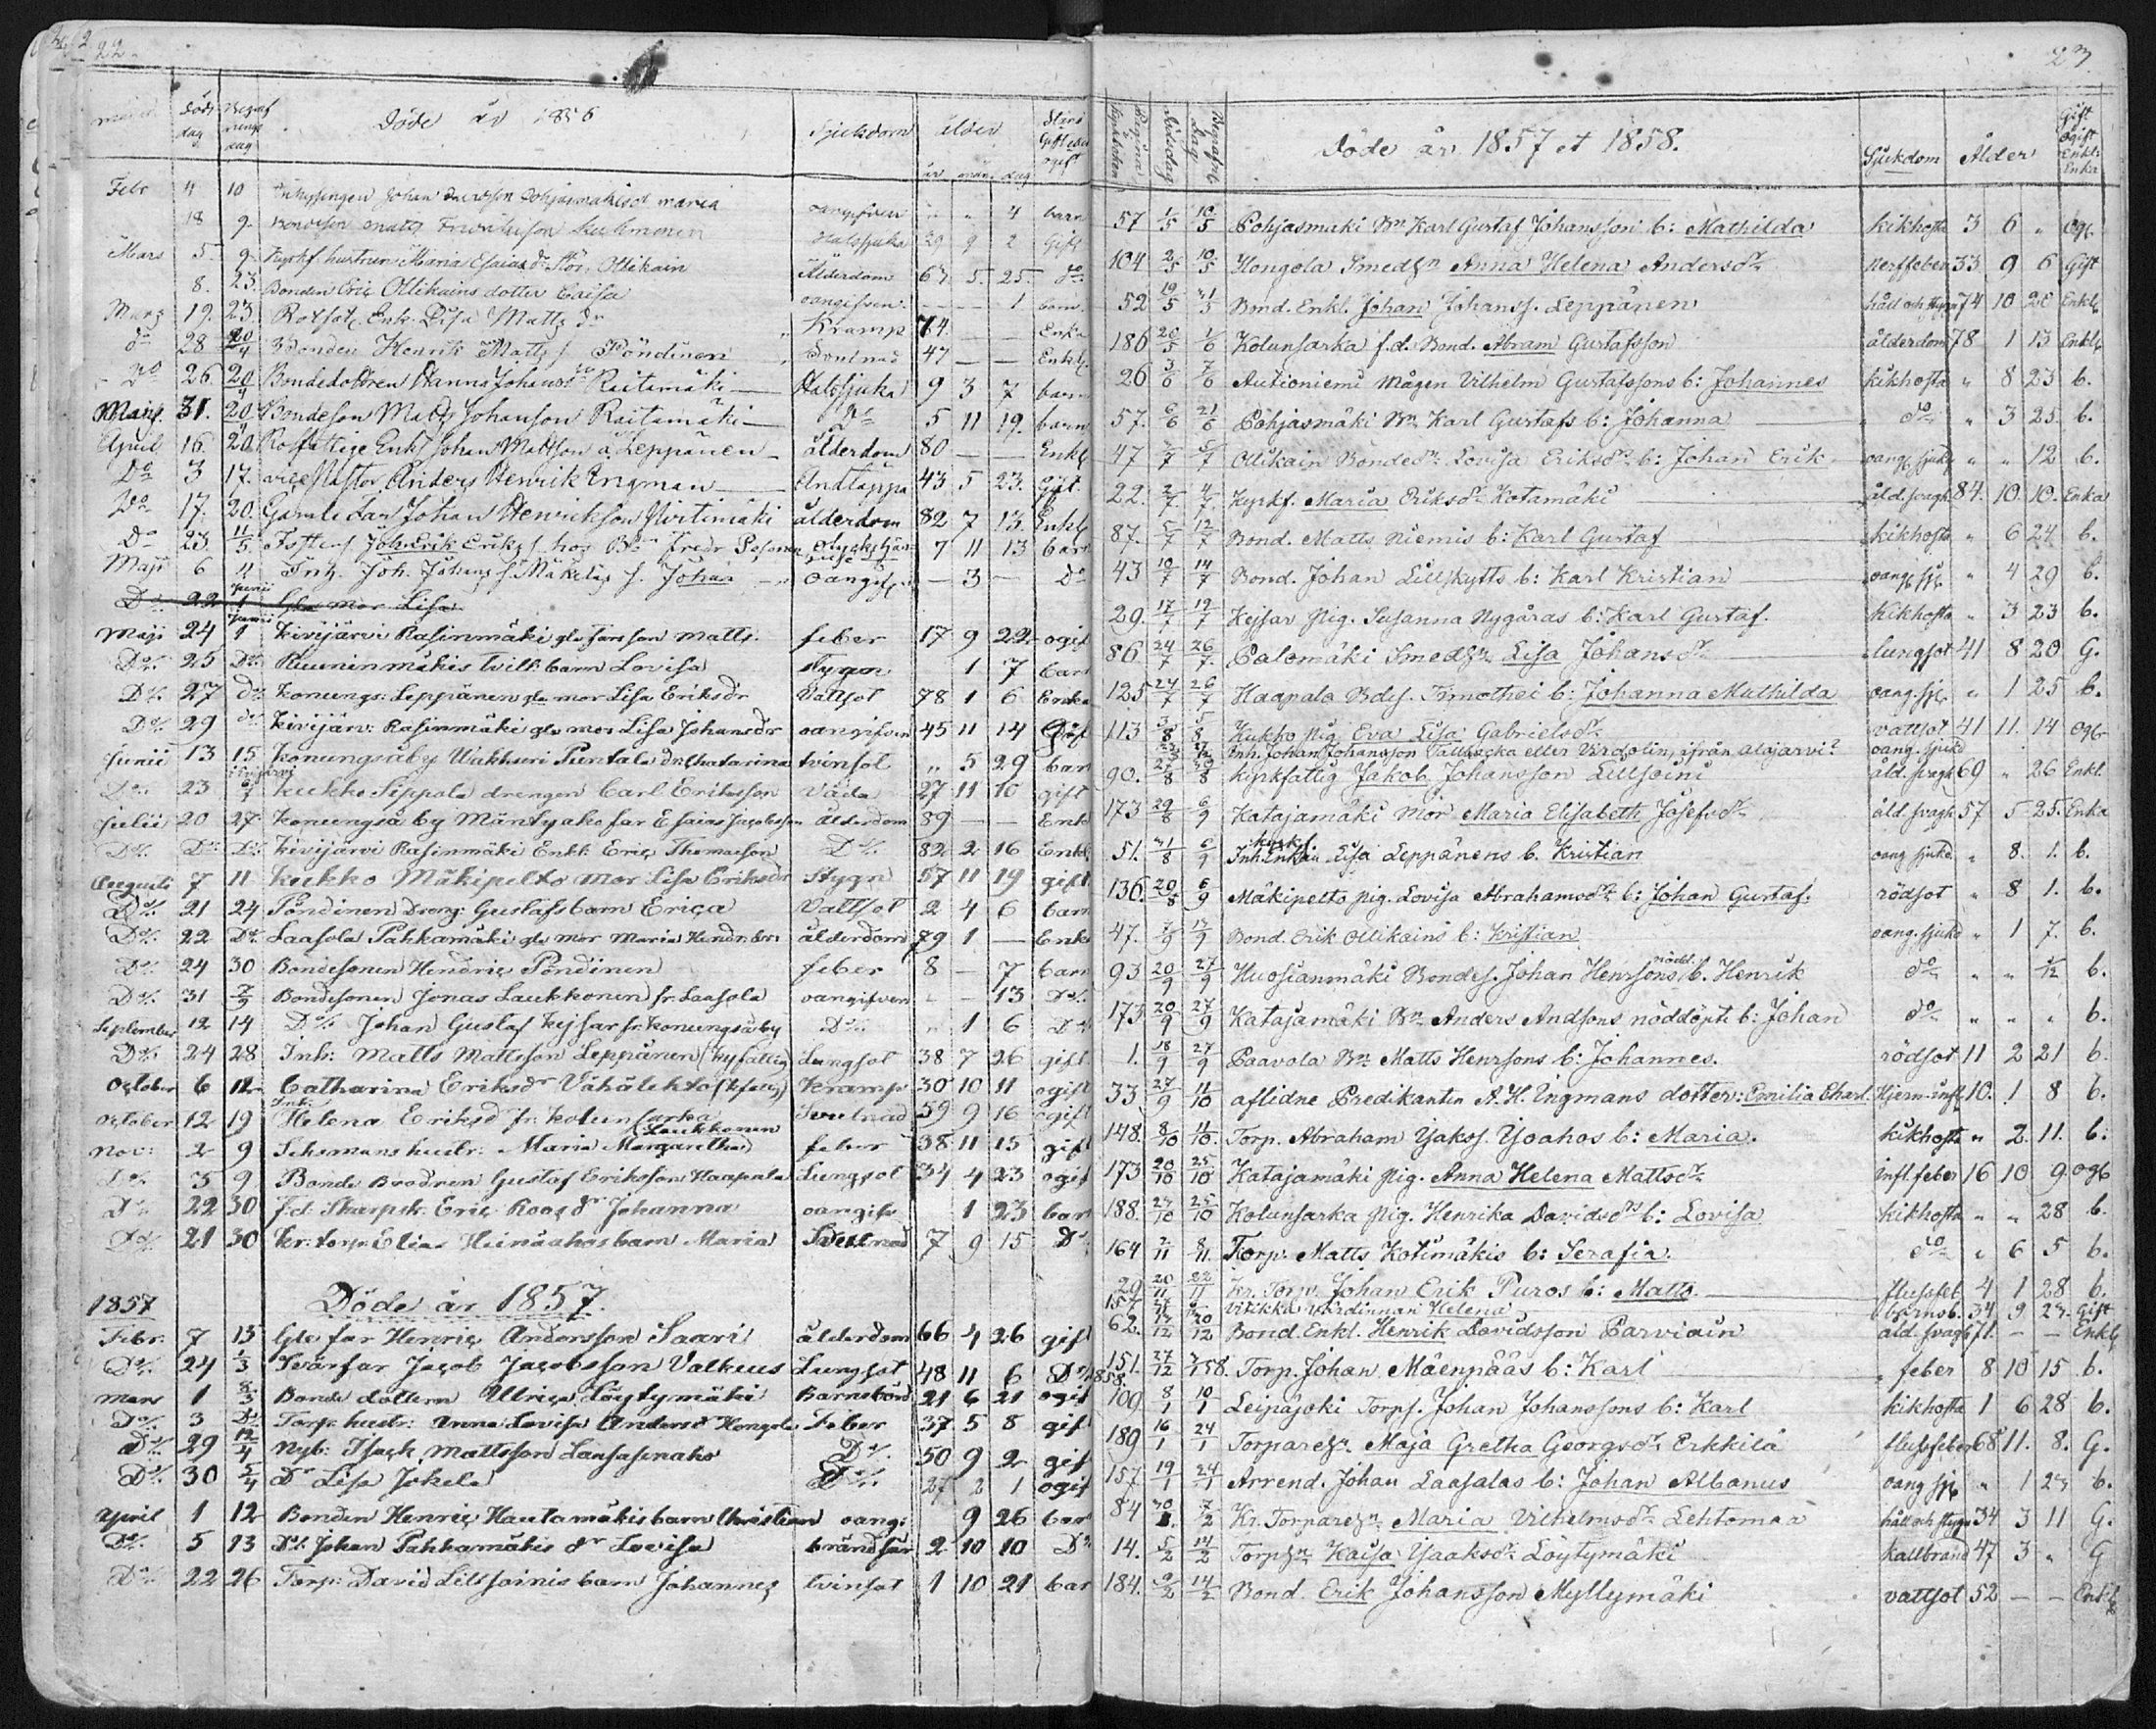 22
Död dag Begrafnings dag Döde år 1856 Sjukdom ålder
år mån. dag
Febr 4 10 Johan maria oangifven " " 4 barn
18 9 Matts Halssjuka 29 9 2 Gift
Mars 5. 9. hustrun Maria Esaiasdr Ollikain Ålderdom 67 5. 25. Do
8. 23. Bonden Eriç Ollikains dotter Caisa oangifven. — — 1 barn.
Mars 19. 23. Enk. Lisa Matts dr Kramp 74 — — Enka
do 28 20/4 Bonden Henrik Matts s. Pöndinen 47 — — Enkl.
Do 26. 20/4 Bondedottren Johansdr Raitamäki — Halssjuka 9 3 7 barn
Mars. 31. 20/4 Bondeson Matts Johanson Raitamäki — Do 5 11 19. barn
April 16. 20. Enkl Johan Mattson å Leppänen — ålderdom 80 — — Enkl
Do 3 17. vice Pastor Anders Henrik Engman — 43 5 23. Gift.
Do 17. 20. Gamle far Johan Henrikson ålderdom 82 7 13. Enkl
Do 23. 11/5 Joh. Erik Eriks s. hos Fredr 7 11 13 barn
Maji 6 4 Joh. Johans s. Mäkeläs s. Johan — oangif — 3 — Do
Do 22 1 Junii Gla mor Lisa
Maji 24 1 Junii Kivijärvi Rasinmäki gla farsson Matts. feber 17 9 22 ogift
Do 25 Do Ruuninmäkis tvill. barn Lovisa Stygn 1 7 barn
Do 27 do Konungs: Leppänen gla mor Lisa Eriksdr Vattsot 78 1 6 Enka
Do 29 do Kivijärv: Rasinmäki gla mor Lisa Johansdr oangifven 45 11 14 Gift
Junii 13 15 Konungsåby Wakhuri Puntala dr Chatarina tvinsot " 5 29 barn
Do 23 Kukko Sippola drengen Carl Eriksson Våda 27 11 10 gift
Julii 20 27 Konungsåby Mäntyaho far Esaias Jacobsson ålderdom 89 — — Enkl
Do Do Do Kivijärvi Rasinmäki Enkl. Eriç Thomasson Do 82 2 16 Enkl
Augusti 7 11 Kukko Mäkipelto mor Lisa Eriksdr Stygn 57 11 19 gift
Do 21 24 Pöndinen Dreng: Gustafs barn Eriça Vattsot 2 4 6 barn
Do 22 Do Laasola Pahkamäki gla mor Maria Hendr. dr: ålderdom 79 1 — Enka
Do 24 30 Bondesonen Hendriç Pöndinen feber 8 — 7 barn
Do 31 7/9 Bondesonen Jonas Laukkonen fr. Laasola oangifven " — 13 Do
September 12 14 Do Johan Gustaf Kejsar fr. Konungsåby Do " 1 6 Do
Do 24 28 Inh: Matts Mattsson Leppänen (kyfattig) Lungsot 38 7 26 gift
October 6 12 Catharina Eriksdr Vähälehto (kfattig) Kramp 30 10 11 ogift
October 12 19 Inh: Helena Eriksd fr. Kolunsarka Svulnad 59 9 16 ogift
Nov: 2 9 hustr: Maria Margaretha Laukkonen feber 38 11 15 gift
Do 3 9 Bonde Brodren Gustaf Eriksson Haapala Lungsot 34 4 23 ogift
Do 22 30 fd. Skarpsk. Eriç Roos dr Johanna oangifv 1 23 barn
Do 21 30 Kr: torp: Elias Heinäahos barn Maria Svulnad 7 9 15 Do
1857 Döde år 1857.
Febr. 7 15 Gle far Henriç Andersson Saari ålderdom 66 4 26 gift
Do 24 1/3 Svärfar Jaçob Jaçobsson Valkuus Lungsot 48 11 6 Do
Mars 1 8/3 Bonde dottern Ulriça Löytymäki Barnsbörd 21 6 21 ogift
Do 3 Do Torp: hustr: Anna Lovisa Andersd Hongola Feber 37 5 8 gift
Do 29 12/4 Nyb: Isack Mattsson Do 50 9 2 gift
Do 30 5/4 Do Lisa Jokela Do 27 2 1 ogift
April 1 12 Bonden Henriç Hautamäkis barn Christian oang: 9 26 barn
Do 5 13 Do Johan Pahkamäkis dr Lovisa brändsår 2 10 10 Do
Do 22 26 Torp: David Lillsoinis barn Johannes tvinsot 1 10 21 barn
23
Dödsdag Begrafn. Dag Döde år 1857 et 1858. Sjukdom Ålder Gift Ogift Enkl. Enka
57 1/5 10/5 Pohjasmäki Bn Karl Gustaf Johansson b: Mathilda kikhosta 3 6 " Ogf.
104 2/5 10/5 Hongola Smedhn Anna Helena Andersdr Nerffeber 33 9 6 Gift
52 19/5 31/5 Bond. Enkl. Johan Johanss. Leppänen håll och stygn 74 10 20 Enkl
186 20/5 1/6 Kolunsarka f.d. Bond. Abram Gustafsson ålderdom 78 1 13 Enkl
26 3/6 7/6 Autioniemi Mågen Vilhelm Gustafssons b: Johannes kikhosta " 8 23 b.
57. 6/6 21/6 Pohjasmäki Bn Karl Gustafs b: Johanna — do " 3 25. b.
47 2/7 5/7 Ollikain Bondedr Lovisa Eriksdr b: Johan Erik oang sjukd " " 12 b.
22. 2/7 4/7 Kyrkf. Maria Eriksdr Katamäki — åld. svagh 84. 10. 10. Enka
87. 5/7 12/7 Bond. Matts Niemis b: Karl Gustaf — kikhosta " 6 24 b.
43 10/7 14/7 Bond. Johan Lillskytts b: Karl Kristian — oang sj. " 4 29 b.
29. 17/7 19/7 Kejsar Pig. Susanna Nygåras b: Karl Gustaf. kikhosta " 3 23 b.
86 24/7 26/7 Palomäki Smedhn Lisa Johansdr — lungsot 41 8 20 G.
125 24/7 26/7 Haapala Bdes. Timothei b: Johanna Mathilda oang. sj. " 1 25 b.
113 3/8 5/8 Kukko Pig. Eva Lisa Gabrielsdr vattsot 41 11. 14 Ogf
Inh. Johan Johansson Tallbacka eller Värdolin, ifrån alajärvi? oang. sjukd
90. 27/8 30/8 Kyrkfattig Jakob Johansson Lillsoini åld. svagh 69 " 26 Enkl.
173 29/8 6/9 Katajamäki Mor Maria Elisabeth Josefsdr åld. svagh 57 5 25. Enka
51. 31/8 6/9 Inh. Enkan Lisa Leppänens b. Kristian oang sjukd " 8. 1. b.
136. 20/8 6/9 Mäkipelto pig. Lovisa Abrahamsdr b: Johan Gustaf. rödsot " 8 1. b.
47. 7/9 13/9 Bond. Erik Ollikains b: Kristian oang. sjukd " 1 7. b.
93 20/9 27/9 Huosianmäki Bondes. Johan Henrsons nödd. b. Henrik do " " 1/12 b.
173 20/9 27/9 Katajamäki Bn Anders Andsons nöddöpte b: Johan do " " " b.
1. 18/9 27/9 Paavola Bn Matts Henrsons b: Johannes. rödsot 11 2 21 b.
33 27/9 11/10 aflidne Predikanten A. H. Engmans dotter: Emilia Charl. Hjern-infl 10. 1 8 b.
148. 8/10 11/10. Torp. Abraham Yaks s. Yoahos b: Maria. kikhosta " 2 11. b.
173 20/10 25/10 Katajamäki Pig. Anna Helena Mattsdr infl. feber 16 10 9. ogf
188. 23/10 25/10 Kolunsarka Pig. Henrika Davidsdrs b: Lovisa kikhosta " " 28 b.
164 2/11 8/11. Torp. Matts Kotimäkis b: Serafia. do " 6 5 b.
29 20/11 22/11 Kr. Torp. Johan Erik Puros b: Matts. — flussfeb. 4 1 28 b.
157 Vitikka värdinnan Helena barnsb. 34 9 23. Gift
62. 13/12 20/12 Bond. Enkl. Henrik Davidsson Parviain åld. svagh 71. — — Enkl
151. 27/12 3/1 58. Torp. Johan Mäenpääs b: Karl feber 8 10 15 b.
1858.
109 8/1 10/1 Leipäjoki Torps. Johan Johanssons b: Karl kikhosta 1 6 28 b.
189 16/1 24/1 Torparehn Maja Gretha Georgsdr Erkkilä flussfeber 68 11. 8. G.
157. 19/1 24/1 Arrend. Johan Laasalas b: Johan Albanus oang sj. " 1 23 b.
84 30/1. 7/2 Kr. Torparehn Maria Vilhelmsdr Lehtomaa håll och stygn 34 3 11 G.
14. 5/2 14/2 Torphn Kaisa Yaaksdr Löytymäki kallbrand 47 3 " G
184. 9/2 14/2 Bond. Erik Johansson Myllymäki vattsot 52 — — Enkl